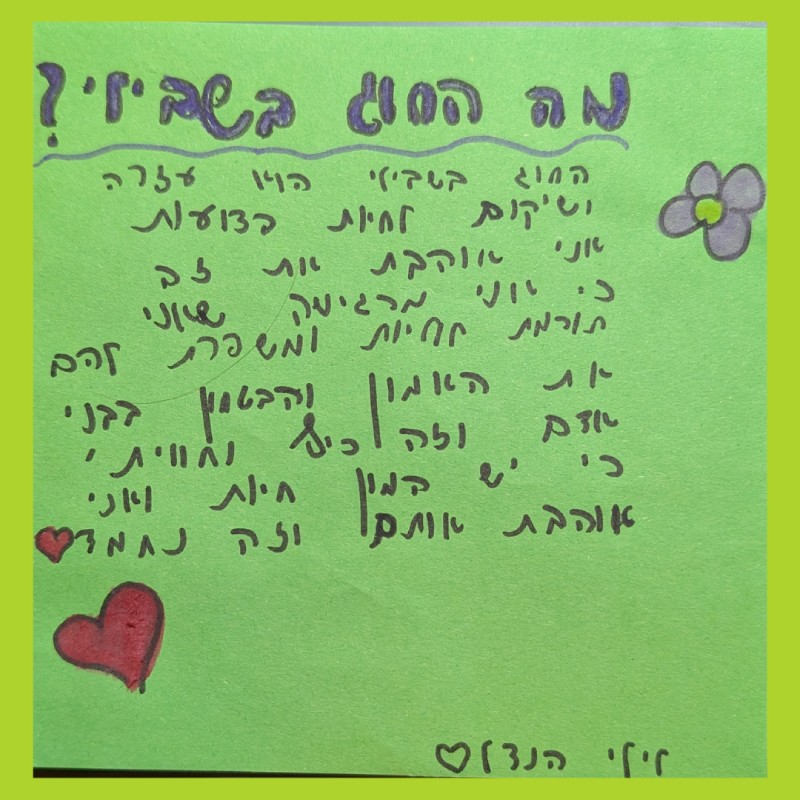 מה החוג בשבילי?
החוג בשבילי הוא עזרה
ושיקום לחיות פצועות
אני אוהבת את זה
כי אני מרגישה שאני
תורמת לחיות ומשפרת להם
את האמון והבטחון בבני
אדם וזה כיף וחוויתי
כי יש המון חיות ואני
אוהבת אותם וזה נחמד
לילי הנדל